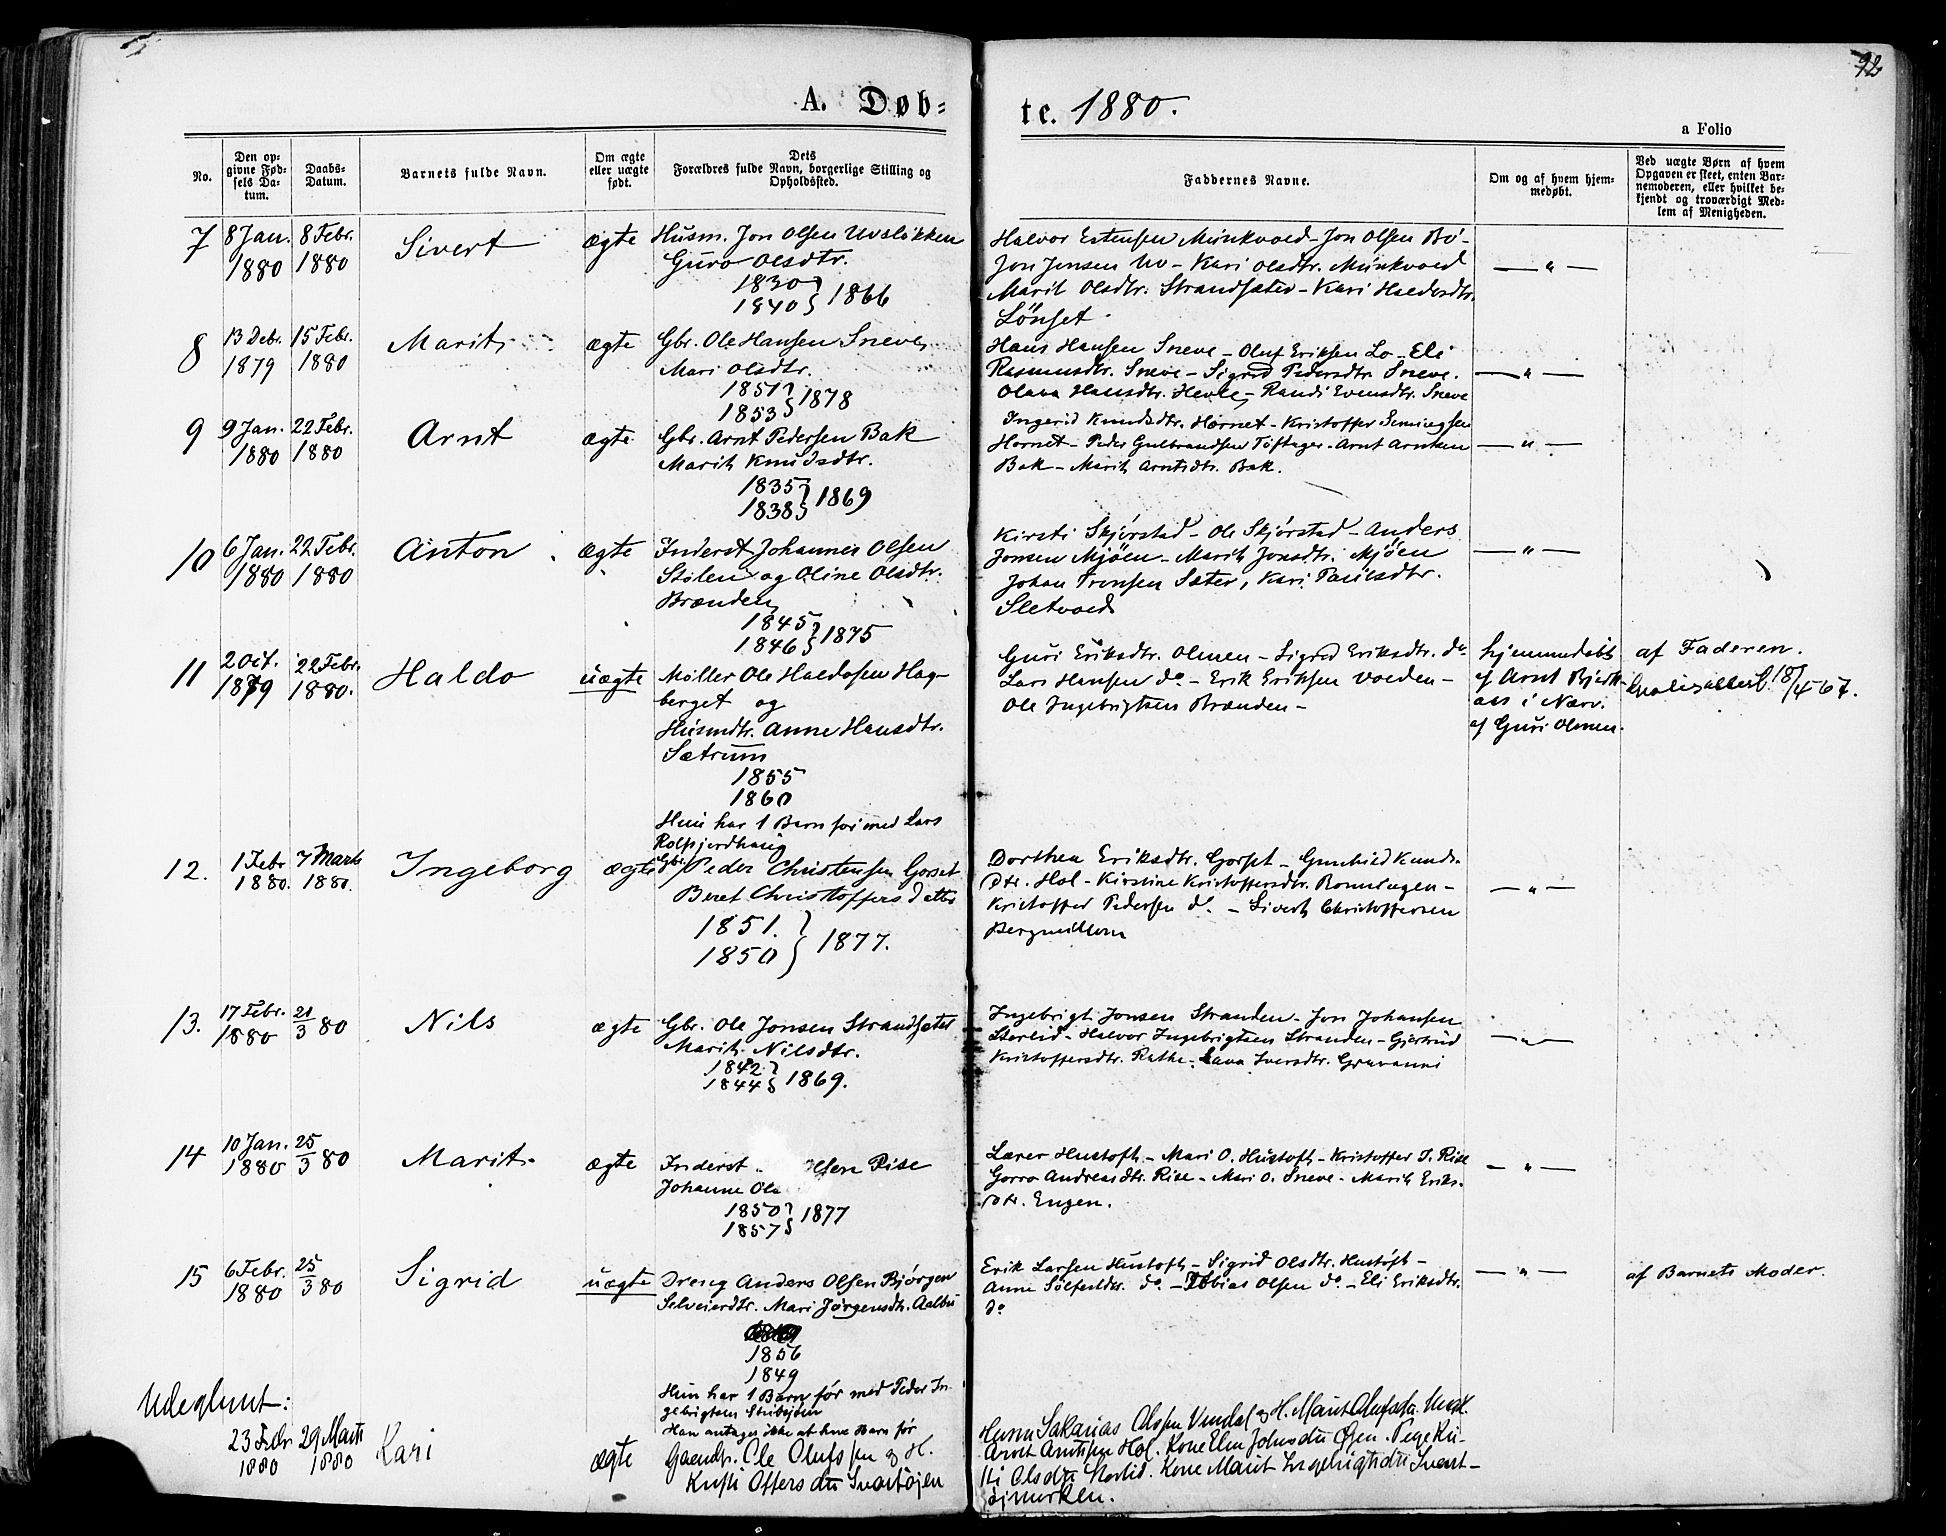 92
A. Døb=
te. 1880.
a Folio
No.
Den op-
givne Fød-
sels Da-
tum.
Daabs-
Datum.
Barnets fulde Navn.
Om ægte
eller uægte
født.
Dets
Forældres fulde Navn, borgerlige Stilling og
Opholdssted.
Faddernes Navne.
Om og af hvem hjem-
medøbt.
Ved uægte Børn af hvem
Opgaven er skeet, enten Bar-
nemoderen, eller hvilket be-
kjendt og troværdigt Med-
lem af Menigheden.
7
8 Jan.
1880
8 Febr.
1880
Sivert
ægte
Husm. Jon Olsen Uvsløkken
Guro Olsdtr.
1830
1840 } 1866
Halvor Estensen Munkvold - Jon Olsen Bø -
Jon Jonsen Uv - Kari Olsdtr. Munkvold
Marit Olsdtr. Strandsæter - Kari Haldosdtr.
Lönset
— " —
8
13 Debr.
1879
15 Febr.
1880
Marit
ægte
Gbr. Ole Hansen Sneve,
Mari Olsdtr.
1851
1853 } 1878
Hans Hansen Sneve - Oluf Eriksen Lo - Eli
Rasmusdtr. Sneve - Sigrid Pedersdtr. Sneve.
Olava Hansdtr. Hevle, Randi Evensdtr. Sneve
— " —
9
9 Jan.
1880
22 Febr.
1880
Arnt
ægte
Gbr. Arnt Pedersen Bak
Marit Knudsdtr.
1835
1838 } 1869
Ingerid Knudsdtr. Hornet - Kristoffer Semingsen
Hornet - Peder Gulbrandsen Toftager - Arnt Arntsen
Bak - Marit Arntsdtr. Bak.
— " —
10
6 Jan.
1880
22 Febr.
1880
Anton
ægte
Inderst Johannes Olsen
Stølen og Oline Olsdtr.
Brænden
1845
1846 } 1875
Kirsti Skjørstad - Ole Skjørstad - Anders
Jonsen Mjöen - Marit Jonsdtr. Mjöen
Johan Sæter, Kari Paulsdtr.
Sletvold
— " —
11
2 Oct.
1879
22 Febr.
1880.
Haldo
uægte
Møller Ole Haldosen Hag-
berget og
Husmdtr. Anne Hansdtr.
Sætrum
1855
1860
Hun har 1 Barn før med Lars
Guri Eriksdtr. Olmen - Sigrid Eriksdtr. do
Lars Hansen do - Erik Eriksen Volden -
Ole Ingebrigtsen Brænden -
hjemmedøbt
af Arnt Bjerk-
aas i Nærv.
af Guri Olmen.
af Faderen.
18/4 67.
12.
1 Febr
1880.
7 Marts
1880.
Ingeborg
ægte
Gbr. Peder Christensen Gorset
Beret Christoffersdatter
1851.
1850 } 1877.
Dorthea Eriksdtr. Gorset - Gunhild Knuds-
dtr. Hol - Kirstine Kristoffersdtr. Bonulagen -
Kristoffer Pedersen do. - Sivert Christoffersen
— " —
13.
17 Febr.
1880
21/3 80
Nils
ægte
Gbr. Ole Jonsen Strandsæter
Marit Nilsdtr.
1842
1844 } 1869.
Ingebrigt Jonsen Stranden - Jon Johansen
Storlid - Halvor Ingebrigtsen Stranden - Gjertrud
Kristoffersdtr. Rathe. Lava Iversdtr. Gravanni
— " —
14
10 Jan.
1880
25/3 80
Marit
ægte
Inderst Olsen Rise
Johanne Ols
1850
1857 } 1877
Lærer Hustoft - Mari O. Hustoft - Kristoffer J. Rise
Gorro Andreasdtr. Rise - Mari O. Sneve - Marit Eriks-
dtr. Engen.
— " —
15
6 Febr.
1880
25/3 80
Sigrid
uægte
Dreng Anders Olsen Bjørgen
Selveierdtr. Mari Jørgensdtr. Aalbu
1856
1849
Hun har 1 Barn før med Peder In-
gebrigtsen
Han antages ikke at have Barn før
Erik Larsen Hustoft - Sigrid Olsdtr. Hustoft -
Anne do - Tobias Olsen do - Eli Eriksdtr.
do
— " —
af Barnets Moder.
Udeglemt:
23 Febr
1880
29 Marts
1880
Kari
ægte
Gaardbr. Ole Olufssen og H.
Kirsti Olfersdtr Svartøjen
Husm Sakarias Olssen Vindal og H. Marit Olufsdtr.
Arnt Arntssen Hol. Kone Elen Johnsdtr Øien. Pige Ki-
sti Olsdtr Storlid. Kone Marit Ingebrigtsdtr Svart-